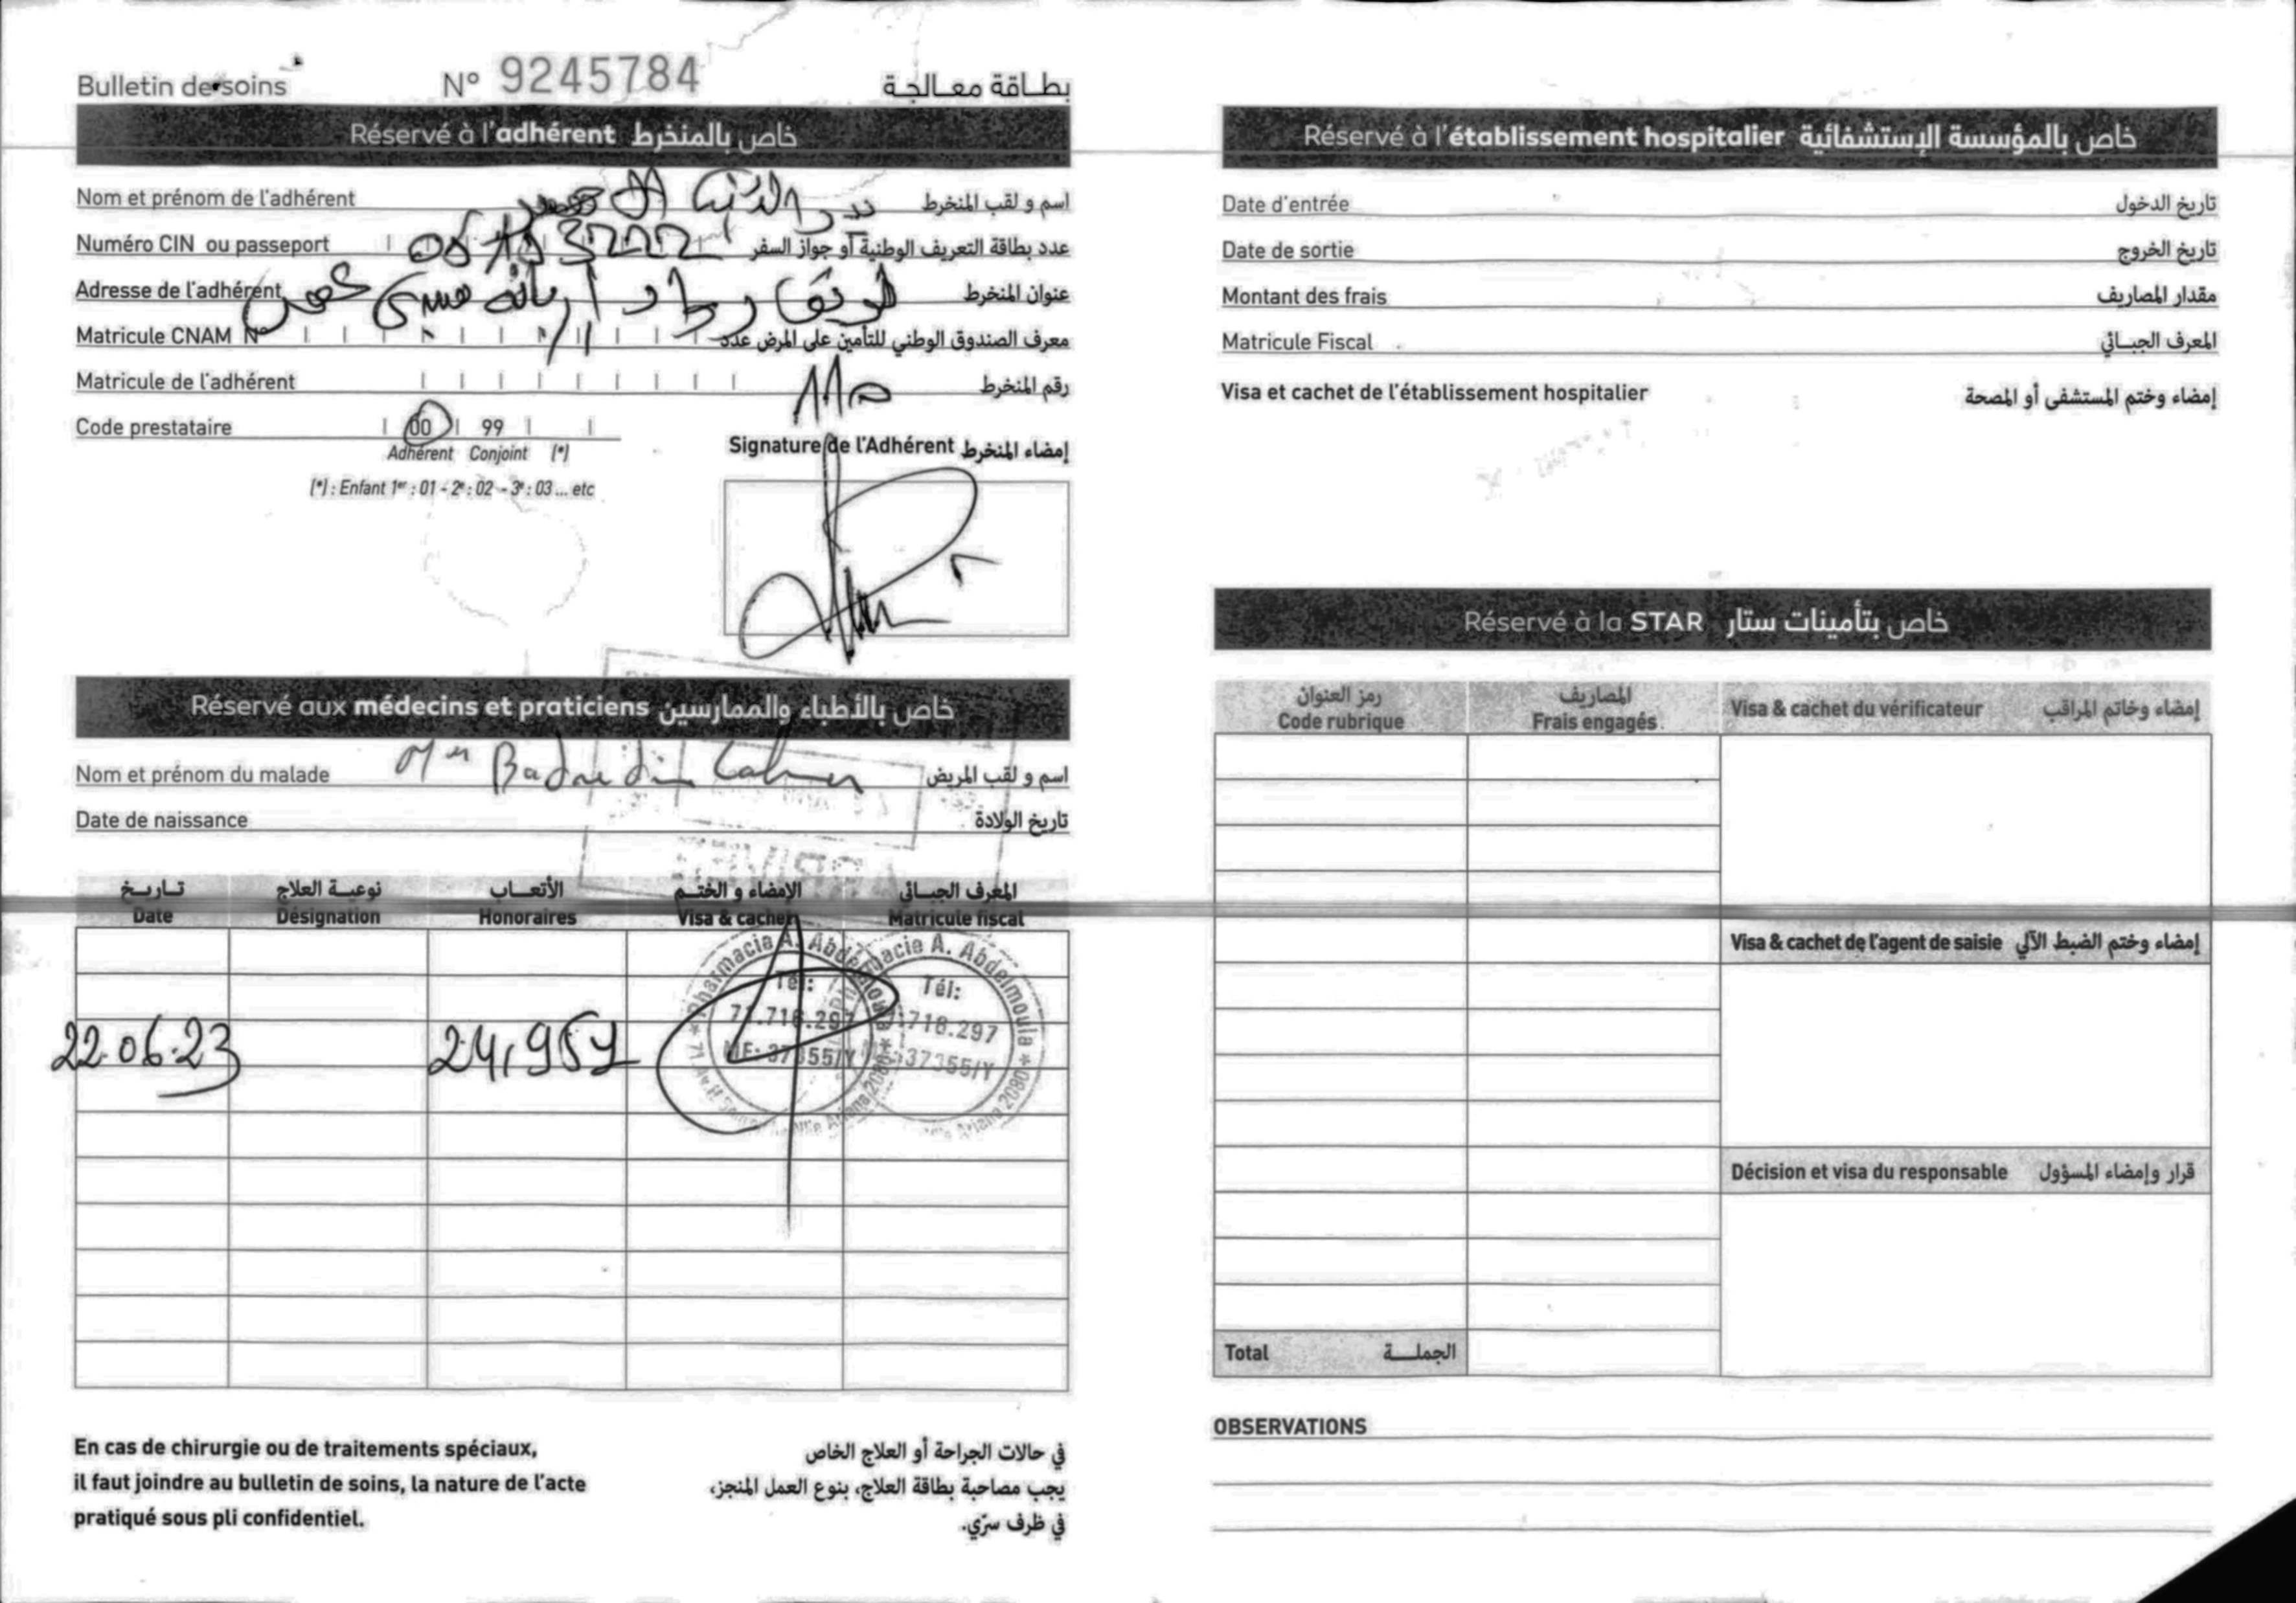 Bulletin de soins N° 9245784 بطاقة معالجة
Réservé à l'adhérent خاص بالمنخرط
Nom et prénom de l'adhérent بدر الدين اسم و لقب المنخرط
Numéro CIN ou passeport عدد بطاقة التعريف الوطنية أو جواز السفر
Adresse de l'adhérent عنوان المنخرط
Matricule CNAM N° معرف الصندوق الوطني للتأمين على المرض عدد
Matricule de l'adhérent رقم المنخرط
Code prestataire 00 99
Adhérent Conjoint (*)
(*) : Enfant 1er : 01 - 2e : 02 - 3e : 03 ... etc
Signature de l'Adhérent إمضاء المنخرط
Réservé aux médecins et praticiens خاص بالأطباء والممارسين
Nom et prénom du malade اسم و لقب المريض
Date de naissance تاريخ الولادة
تاريخ نوعية العلاج الأتعاب الإمضاء و الختم المعرف الجبائي
Date Désignation Honoraires Visa & cachet Matricule fiscal
Pharmacie A. Abdelmoula
Tél:
71.716.297
MF: 37355/Y
Ariana 2080
22.06.23 24,957
En cas de chirurgie ou de traitements spéciaux,
il faut joindre au bulletin de soins, la nature de l'acte
pratiqué sous pli confidentiel.
في حالات الجراحة أو العلاج الخاص
يجب مصاحبة بطاقة العلاج، بنوع العمل المنجز،
في ظرف سرّي.
Réservé à l'établissement hospitalier خاص بالمؤسسة الإستشفائية
Date d'entrée تاريخ الدخول
Date de sortie تاريخ الخروج
Montant des frais مقدار المصاريف
Matricule Fiscal المعرف الجبائي
Visa et cachet de l'établissement hospitalier إمضاء وختم المستشفى أو المصحة
Réservé à la STAR خاص بتأمينات ستار
رمز العنوان المصاريف
Code rubrique Frais engagés Visa & cachet du vérificateur إمضاء وخاتم المراقب
Visa & cachet de l'agent de saisie إمضاء وختم الضبط الآلي
Décision et visa du responsable قرار وإمضاء المسؤول
Total الجملة
OBSERVATIONS